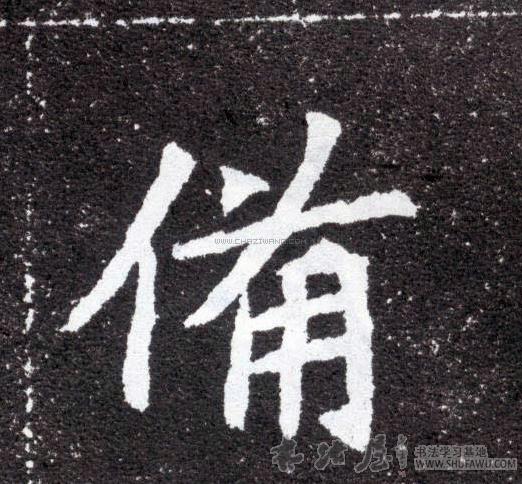 備
WWW.CHAZIWANG.COM
书法学习基地
WWW.SHUFAWU.COM